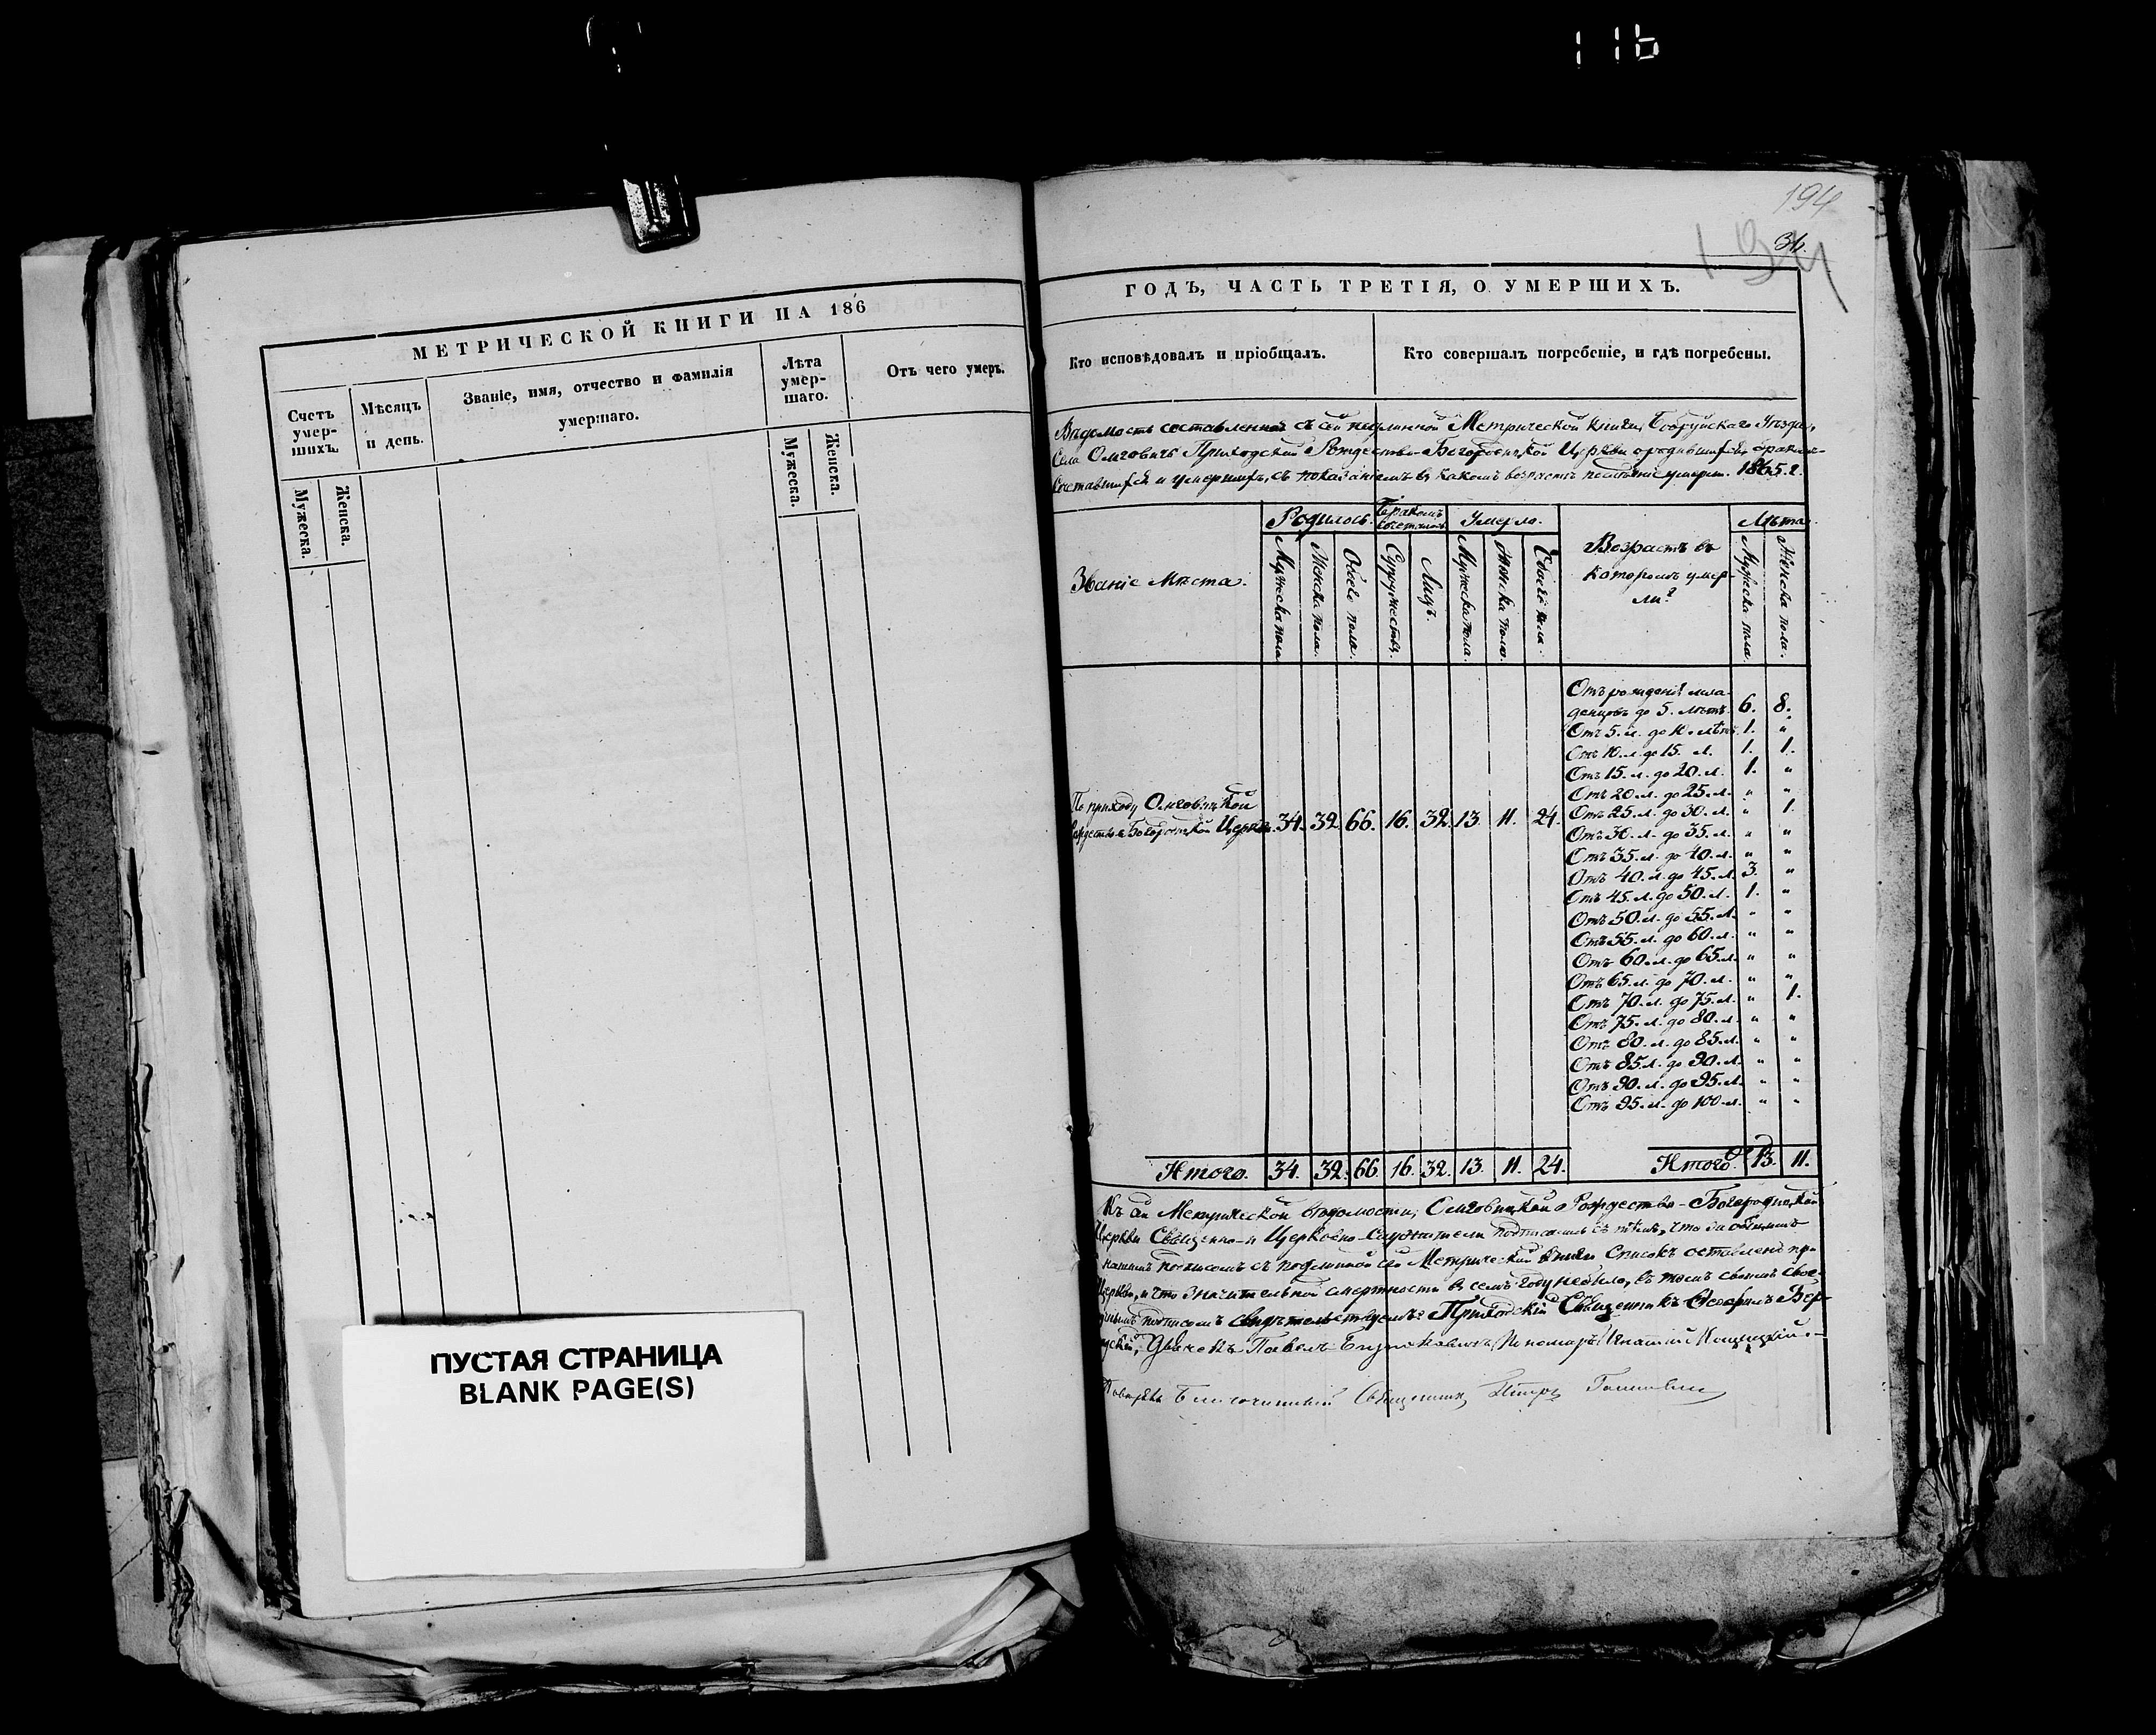 116
194
194
36.
МЕТРИЧЕСКОЙ КНИГИ НА 186
Счетъ умер-шихъ.
Мѣсяцъ и день.
Званіе, имя, отчество и фамилія умершаго.
Лѣта умер-шаго.
Отъ чего умеръ.
Мужеска.
Женска.
Мужеска.
Женска.
ПУСТАЯ СТРАНИЦА
BLANK PAGE(S)
ГОДЪ, ЧАСТЬ ТРЕТІЯ, О УМЕРШИХЪ.
Кто исповѣдовалъ и пріобщалъ.
Кто совершалъ погребеніе, и гдѣ погребены.
Вѣдомость составленная съ сей подлинной Метрической книги, Бобруйскаго Уѣзда,
Села Омговичъ Приходской Рождество-Богородицкой Церкви о родившихся, бракомъ
сочетавшихся и умершихъ, съ показаніемъ въ какомъ возрастѣ послѣдніе умерли. 1865. г.
Званіе мѣста.
Родилось.
Бракомъ сочеталось
Умерло.
Возрастъ въ
которомъ умер-
ли?
Лѣта
Мужеска пола
Женска пола.
Обоего пола.
Супружествъ.
Лицъ.
Мужеска пола.
Женска пола.
Обоего пола.
Мужеска пола.
Женска пола.
По приходу Омговицкой
Рождество-Богородицкой Церкви. 34. 32. 66. 16. 32. 13. 11. 24.
Отъ рожденія мла-
денцовъ до 5. лѣтъ. 6. 8.
Отъ 5. л. до 10. лѣтъ. 1. "
Отъ 10. л. до 15. л. 1. 1.
Отъ 15. л. до 20. л. 1. "
Отъ 20. л. до 25. л. " "
Отъ 25. л. до 30. л. " 1.
Отъ 30. л. до 35. л. " "
Отъ 35. л. до 40. л. " "
Отъ 40. л. до 45. л. 3. "
Отъ 45. л. до 50. л. 1. "
Отъ 50. л. до 55. л. " "
Отъ 55. л. до 60. л. " "
Отъ 60. л. до 65. л. " "
Отъ 65. л. до 70. л. " "
Отъ 70. л. до 75. л. " 1.
Отъ 75. л. до 80. л. " "
Отъ 80. л. до 85. л. " "
Отъ 85. л. до 90. л. " "
Отъ 90. л. до 95. л. " "
Отъ 95. л. до 100. л. " "
Итого. 34. 32. 66. 16. 32. 13. 11. 24. Итого. 13. 11.
Къ сей Метрической вѣдомости, Омговицкой Рождество-Богородицкой
Церкви Священно-и Церковно-Служители подписались съ тѣмъ, что за общимъ
нашимъ подписомъ съ подлинной сей Метрической книги Списокъ оставленъ при
Церкви, и что значительной смертности въ семъ году небыло, въ томъ своимъ свое-
ручнымъ подписомъ свидѣтельствуемъ: Приходскій Священникъ
Дьячекъ Павелъ Пономарь Игнатій
Благочинный Священникъ Петръ